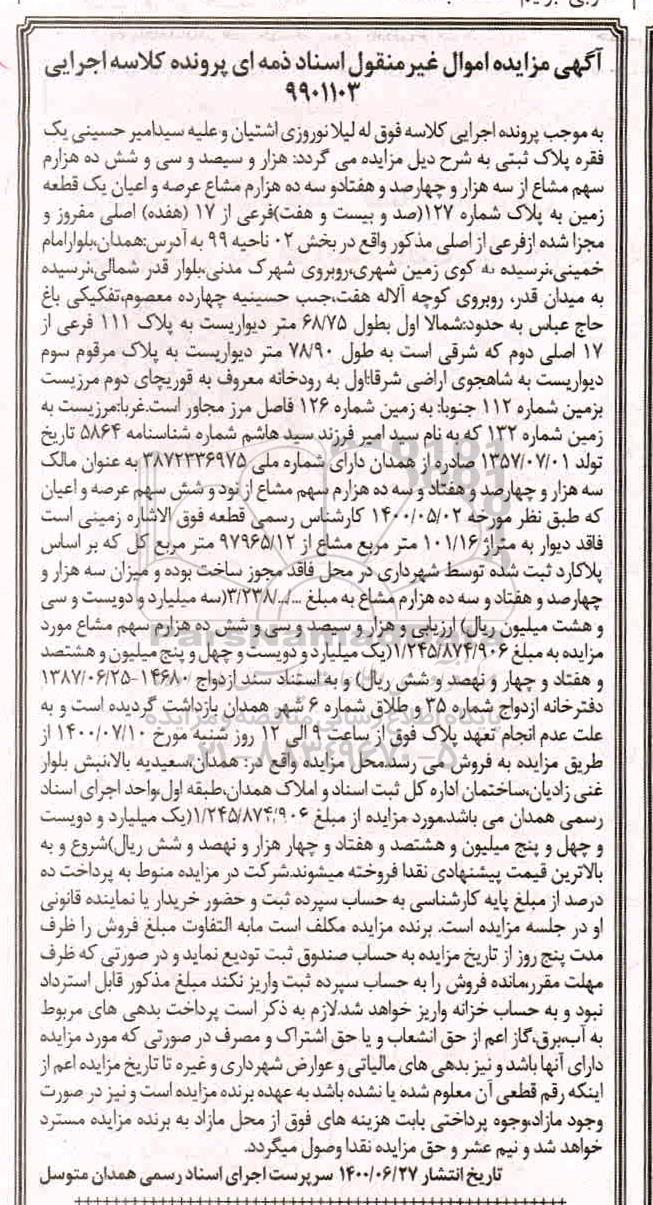 آگهی مزایده اموال غیرمنقول اسناد ذمه ای پرونده کلاسه اجرایی
۹۹۰۱۱۰۳
به موجب پرونده اجرایی کلاسه فوق له لیلا نوروزی اشتیان و علیه سیدامیر حسینی یک
فقره پلاک ثبتی به شرح ذیل مزایده می گردد: هزار و سیصد و سی و شش ده هزارم
سهم مشاع از سه هزار و چهارصد و هفتادو سه ده هزارم مشاع عرصه و اعیان یک قطعه
زمین به پلاک شماره ۱۲۷(صد و بیست و هفت)فرعی از ۱۷ (هفده) اصلی مفروز و
مجزا شده ازفرعی از اصلی مذکور واقع در بخش ۰۲ ناحیه ۹۹ به آدرس:همدان،بلوارامام
خمینی،نرسیده به کوی زمین شهری،روبروی شهرک مدنی،بلوار قدر شمالی،نرسیده
به میدان قدر، روبروی کوچه آلاله هفت،جنب حسینیه چهارده معصوم،تفکیکی باغ
حاج عباس به حدود:شمالا اول بطول ۶۸/۷۵ متر دیواریست به پلاک ۱۱۱ فرعی از
۱۷ اصلی دوم که شرقی است به طول ۷۸/۹۰ متر دیواریست به پلاک مرقوم سوم
دیواریست به شاهجوی اراضی شرقا:اول به رودخانه معروف به قوریجای دوم مرزیست
بزمین شماره ۱۱۲ جنوبا: به زمین شماره ۱۲۶ فاصل مرز مجاور است.غربا:مرزیست به
زمین شماره ۱۳۲ که به نام سید امیر فرزند سید هاشم شماره شناسنامه ۵۸۶۴ تاریخ
تولد ۱۳۵۷/۰۷/۰۱ صادره از همدان دارای شماره ملی ۳۸۷۲۳۳۶۹۷۵ به عنوان مالک
سه هزار و چهارصد و هفتاد و سه ده هزارم سهم مشاع از نود و شش سهم عرصه و اعیان
که طبق نظر مورخه ۱۴۰۰/۰۵/۰۲ کارشناس رسمی قطعه فوق الاشاره زمینی است
فاقد دیوار به متراژ ۱۰۱/۱۶ متر مربع مشاع از ۹۷۹۶۵/۱۲ متر مربع کل که بر اساس
پلاکارد ثبت شده توسط شهرداری در محل فاقد مجوز ساخت بوده و میزان سه هزار و
چهارصد و هفتاد و سه ده هزارم مشاع به مبلغ .../...۳/۲۳۸/(سه میلیارد و دویست و سی
و هشت میلیون ریال) ارزیابی و هزار و سیصد و سی و شش ده هزارم سهم مشاع مورد
مزایده به مبلغ ۱/۲۴۵/۸۷۴/۹۰۶(یک میلیارد و دویست و چهل و پنج میلیون و هشتصد
و هفتاد و چهار و نهصد و شش ریال) و به استناد سند ازدواج ۱۴۶۸۰-۱۳۸۷/۰۶/۲۵
دفترخانه ازدواج شماره ۳۵ و طلاق شماره ۶ شهر همدان بازداشت گردیده است و به
علت عدم انجام تعهد پلاک فوق از ساعت ۹ الی ۱۲ روز شنبه مورخ ۱۴۰۰/۰۷/۱۰ از
طریق مزایده به فروش می رسد.محل مزایده واقع در: همدان،سعیدیه بالا،نبش بلوار
غنی زادیان،ساختمان اداره کل ثبت اسناد و املاک همدان،طبقه اول،واحد اجرای اسناد
رسمی همدان می باشد.مورد مزایده از مبلغ ۱/۲۴۵/۸۷۴/۹۰۶(یک میلیارد و دویست
و چهل و پنج میلیون و هشتصد و هفتاد و چهار هزار و نهصد و شش ریال)شروع و به
بالاترین قیمت پیشنهادی نقدا فروخته میشوند.شرکت در مزایده منوط به پرداخت ده
درصد از مبلغ پایه کارشناسی به حساب سپرده ثبت و حضور خریدار یا نماینده قانونی
او در جلسه مزایده است. برنده مزایده مکلف است مابه التفاوت مبلغ فروش را ظرف
مدت پنج روز از تاریخ مزایده به حساب صندوق ثبت تودیع نماید و در صورتی که ظرف
مهلت مقرر،مانده فروش را به حساب سپرده ثبت واریز نکند مبلغ مذکور قابل استرداد
نبود و به حساب خزانه واریز خواهد شد.لازم به ذکر است پرداخت بدهی های مربوط
به آب،برق،گاز اعم از حق انشعاب و یا حق اشتراک و مصرف در صورتی که مورد مزایده
دارای آنها باشد و نیز بدهی های مالیاتی و عوارض شهرداری و غیره تا تاریخ مزایده اعم از
اینکه رقم قطعی آن معلوم شده یا نشده باشد به عهده برنده مزایده است و نیز در صورت
وجود مازاد،وجوه پرداختی بابت هزینه های فوق از محل مازاد به برنده مزایده مسترد
خواهد شد و نیم عشر و حق مزایده نقدا وصول میگردد.
تاریخ انتشار ۱۴۰۰/۰۶/۲۷ سرپرست اجرای اسناد رسمی همدان متوسل